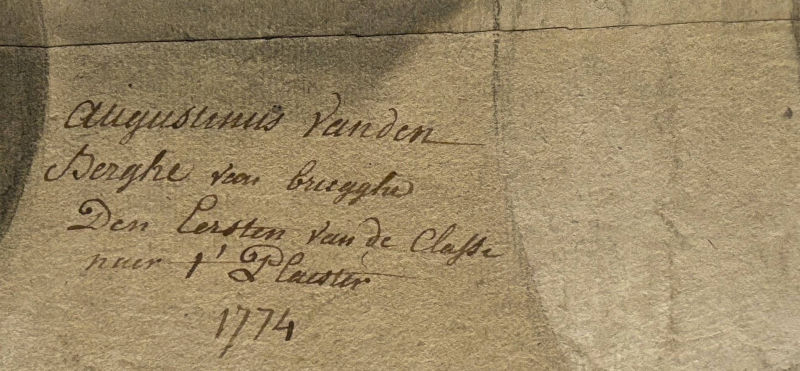 Augustinus Vanden
Berghe van brugghe
Den Eersten van de Classe
naer t' Plaester
1774